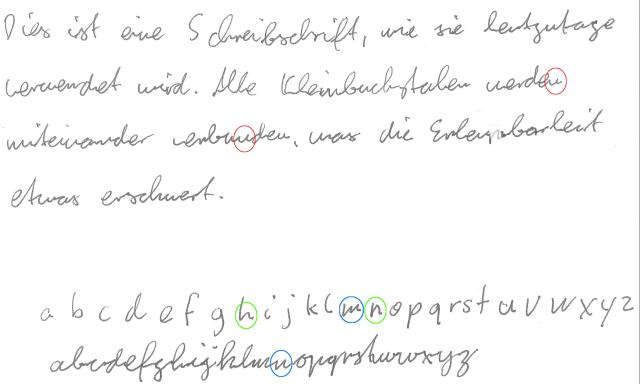 Dies ist eine Schreibschrift, wie sie heutzutage
verwendet wird. Alle Kleinbuchstaben werden
miteinander verbunden, was die Erkennbarkeit
etwas erschwert.
a b c d e f g h i j k l m n o p q r s t u v w x y z
abcdefghijklmnopqrstuvwxyz